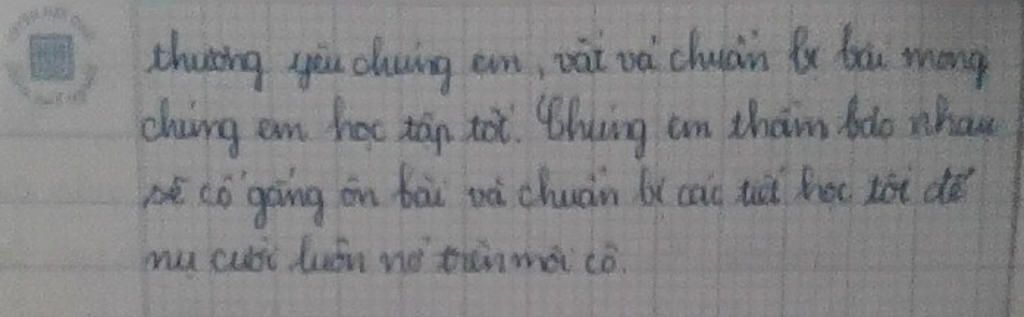 thương yêu chúng em, vất vả chuẩn bị bài mong
chúng em học tập tốt. Chúng em thầm bảo nhau
sẽ cố gắng ôn bài và chuẩn bị các tiết học tới để
nụ cười luôn nở trên môi cô.